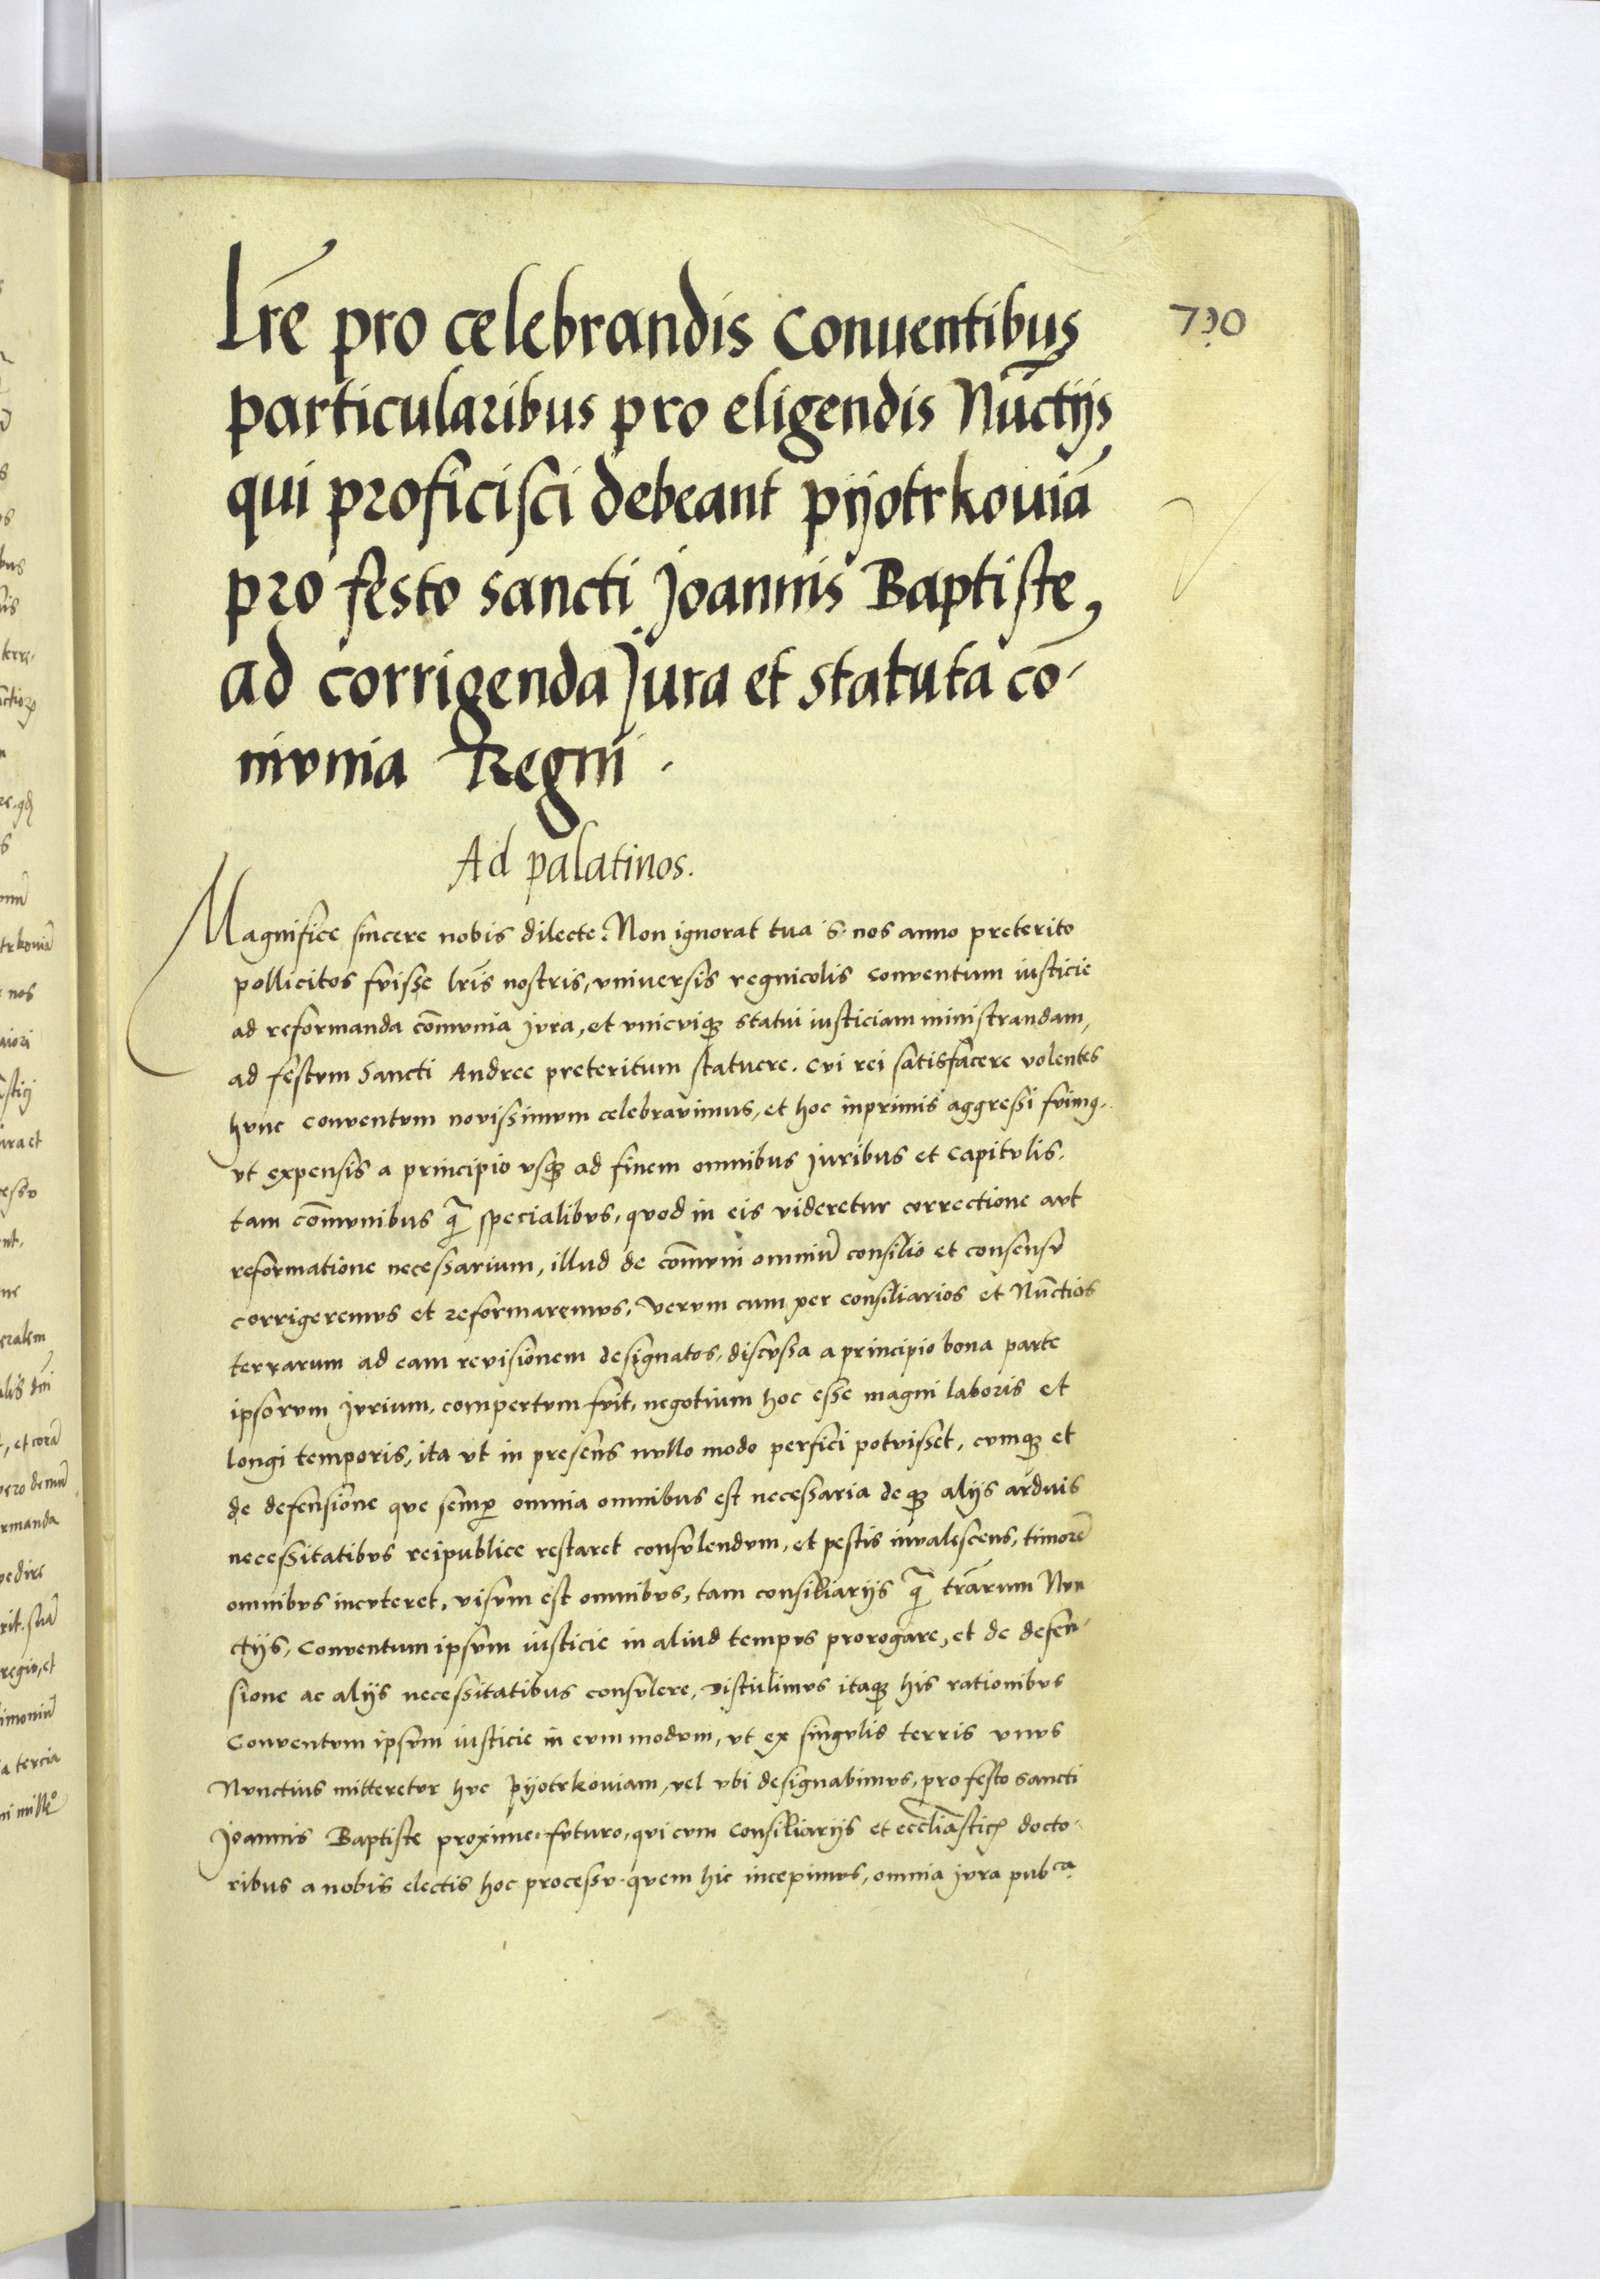 Lr̃e pro celebrandis Conuentibus
particularibus pro eligendis Nũctijs
qui proficisci debeant pyotrkouiã
pro festo sancti Joannis Baptiste,
ad corrigenda Jura et statuta cõ-
mvnia Regni.
790
Ad palatinos.
Magnifice sincere nobis dilecte. Non ignorat tua s. nos anno preterito
pollicitos fvisse lr̃is nostris, vniuersis regnicolis conuentum iusticie
ad reformanda cõmvnia jvra, et vnicviq3 statui iusticiam ministrandam,
ad festvm Sancti Andree preteritum statuere. Cvi rei satisfacere volentes
hvnc conventvm novissimvm celebravimus, et hoc inprimis aggressi fvimq.
vt expensis a principio vsq3 ad finem omnibus Juribus et capitvlis,
tam cõmvnibus q̃ specialibvs, qvod in eis videretur correctione avt
reformatione necessarium, illvd de cõmvni omniũ consilio et consensv
corrigeremvs et reformaremvs. Vervm cum per consiliarios et Nũctios
terrarum ad eam revisionem designatos, discvssa a principio bona parte
ipsorvm Jvrium, compertvm fvit, negotium hoc esse magni laboris et
longi temporis, ita vt in presens nvllo modo perfici potvisset, cvmq3 et
de defensione qve semp̃ omnia omnibus est necessaria deq3 alijs ardvis
necessitatibvs reipublice restaret consvlendvm, et pestis invalescens, timorẽ
omnibvs incvteret, visvm est omnibvs, tam consiliarijs q̃ tr̃arum Nvn
ctijs, Conventum ipsvm iusticie in aliud tempvs prorogare, et de defen-
sione ac alijs necessitatibus consvlere, Distulimvs itaq3 his rationibvs
Conventvm ipsvm iusticie in evm modvm, vt ex singvlis terris vnvs
Nvnctius mitteretvr hvc pyotrkoviam, vel vbi designabimvs, pro festo sancti
Joannis Baptiste proxime fvturo, qvi cvm consiliarijs et eccl̃iastic̃ docto-
ribus a nobis electis hoc processv qvem hic incepimvs, omnia jvra pubca